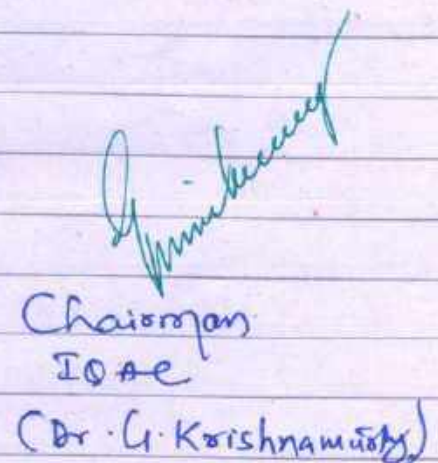 Chairman
IQAC
(Dr. G. Krishnamurthy)